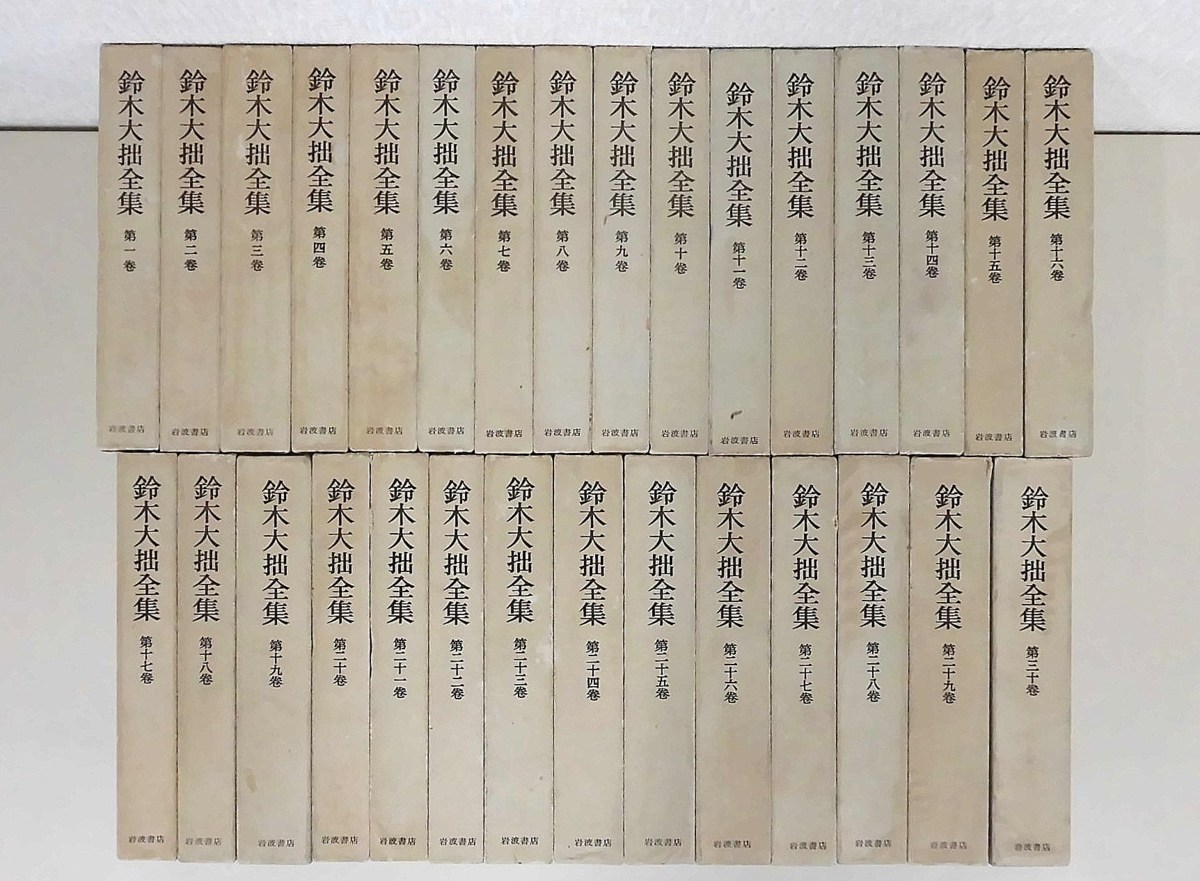 鈴木大拙全集 第一卷 岩波書店
鈴木大拙全集 第二卷 岩波書店
鈴木大拙全集 第三卷 岩波書店
鈴木大拙全集 第四卷 岩波書店
鈴木大拙全集 第五卷 岩波書店
鈴木大拙全集 第六卷 岩波書店
鈴木大拙全集 第七卷 岩波書店
鈴木大拙全集 第八卷 岩波書店
鈴木大拙全集 第九卷 岩波書店
鈴木大拙全集 第十卷 岩波書店
鈴木大拙全集 第十一卷 岩波書店
鈴木大拙全集 第十二卷 岩波書店
鈴木大拙全集 第十三卷 岩波書店
鈴木大拙全集 第十四卷 岩波書店
鈴木大拙全集 第十五卷 岩波書店
鈴木大拙全集 第十六卷 岩波書店
鈴木大拙全集 第十七卷 岩波書店
鈴木大拙全集 第十八卷 岩波書店
鈴木大拙全集 第十九卷 岩波書店
鈴木大拙全集 第二十卷 岩波書店
鈴木大拙全集 第二十一卷 岩波書店
鈴木大拙全集 第二十二卷 岩波書店
鈴木大拙全集 第二十三卷 岩波書店
鈴木大拙全集 第二十四卷 岩波書店
鈴木大拙全集 第二十五卷 岩波書店
鈴木大拙全集 第二十六卷 岩波書店
鈴木大拙全集 第二十七卷 岩波書店
鈴木大拙全集 第二十八卷 岩波書店
鈴木大拙全集 第二十九卷 岩波書店
鈴木大拙全集 第三十卷 岩波書店